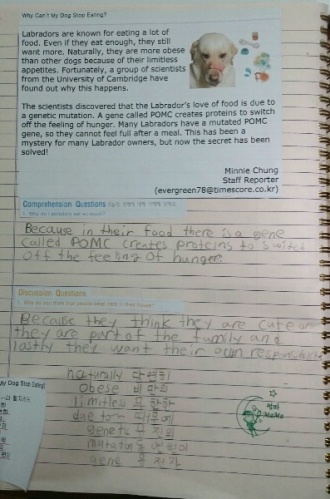 Why Can't My Dog Stop Eating?
Labradors are known for eating a lot of
food. Even if they eat enough, they still
want more. Naturally, they are more obese
than other dogs because of their limitless
appetites. Fortunately, a group of scientists
from the University of Cambridge have
found out why this happens.
The scientists discovered that the Labrador's love of food is due to
a genetic mutation. A gene called POMC creates proteins to switch
off the feeling of hunger. Many Labradors have a mutated POMC
gene, so they cannot feel full after a meal. This has been a
mystery for many Labrador owners, but now the secret has been
solved!
Minnie Chung
Staff Reporter
(evergreen78@timescore.co.kr)
Comprehension Questions
1. Why do Labradors eat so much?
Because in their food there is a gene
called POMC creates proteins to switch
off the feeling of hunger.
Discussion Questions
Because they think they are cute or
they are part of the family and
lastly they want their own
My Dog Stop Eating?
naturally
obese 비만의
limitless
due to~ 때문에
genetic
mutation 돌연변이
gene 유전자
MoMo